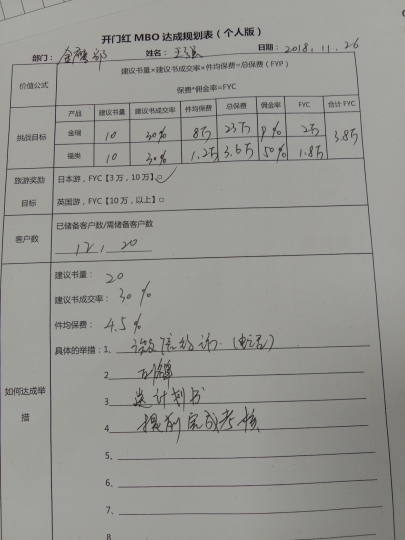 开门红 MBO 达成规划表（个人版）
部门： 金麒部 姓名： 日期： 2018.11.26
价值公式 建议书量×建议书成交率×件均保费=总保费（FYP）
保费*佣金率=FYC
挑战目标 产品 建议书量 建议书成交率 件均保费 总保费 佣金率 FYC 合计 FYC
金瑞 10 30% 8万 23万 9% 2万 3.8万
福类 10 30% 1.2万 3.6万 50% 1.8万
旅游奖励 日本游，FYC【3万，10万】□✓
目标 英国游，FYC【10万，以上】□
客户数 已储备客户数/需储备客户数
12，20
如何达成举措 建议书量： 20
建议书成交率： 30%
件均保费： 4.5%
具体的举措：1、 约访（电话）
2
3 送计划书
4 提前完成考核
5、
6、
7、
8